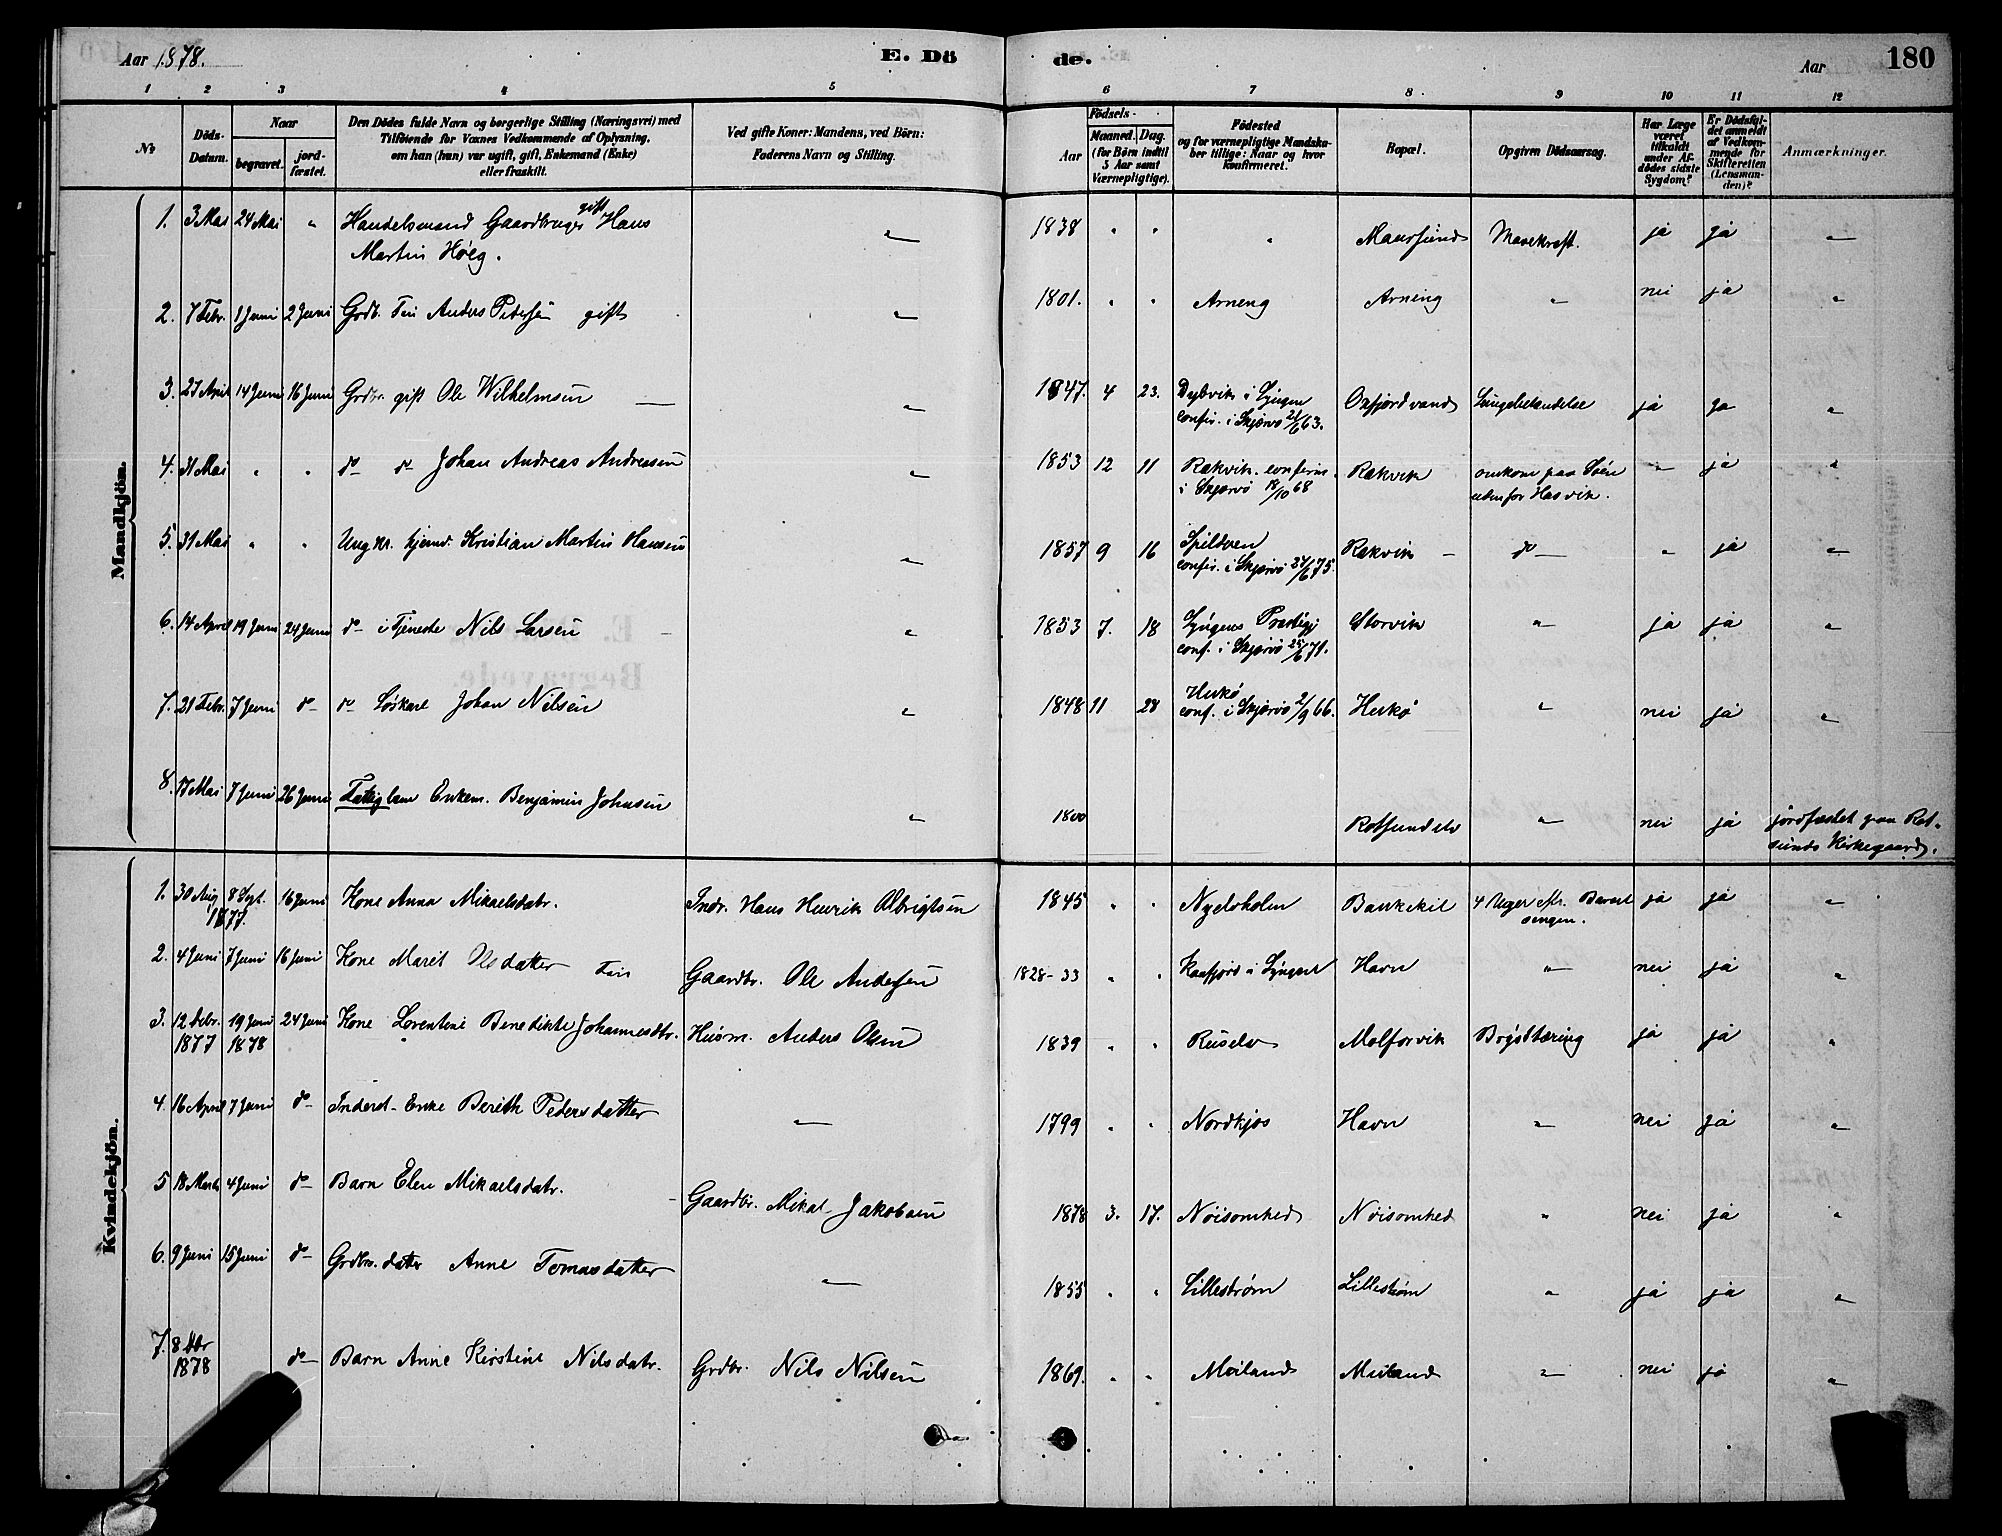 Aar 1878.
E. Dö
de.
Aar
180
1 2 3 4 5 6 7 8. 9 10 11 12
No
Döds-Datum.
Naar
begravet.
jord-fæstet.
Den Dödes fulde Navn og borgerlige Stilling (Næringsvei) med
Tilföiende for Voxnes Vedkommende af Oplysning,
om han (hun) var ugift, gift, Enkemand (Enke)
eller fraskilt.
Ved gifte Koner: Mandens, ved Börn:
Faderens Navn og Stilling.
Födsels-
Aar
Maaned. Dag.
(for Börn indtil
5 Aar samt
Værnepligtige).
Födested
og for værnepligtige Mandska-
ber tillige: Naar og hvor
konfirmeret.
Bopæl.
Opgiven Dödsaarsag.
Har Læge
været
tilkaldt
under Af-
dödes sidste
Sygdom?
Er Dödsfal-
det anmeldt
af Vedkom-
mende for
Skifteretten
(Lensman-
den)?
Anmærkninger.
Mandkjön.
1. 3 Mai 24 Mai " Handelsmand Gaardbruger gift Hans
Martin Høeg. " 1838 " " " Maursund Mavekræft. ja ja "
2. 7 Febr. 1 Juni 2 Juni Grdb. Fin Anders Peders͞en gift " 1801. " " Arneng Arneng " nei ja "
3. 27 April 14 Juni 16 Juni Grdbr. gift Ole Wilhelmsen " 1847. 4 23. Dybvik i Lyngen
confir. i Skjervø 21/6 63. Oxfjordvand Lungebetændelse ja ja "
4. 31 Mai " " do do Johan Andreas Andreasen " 1853 12 11 Rækvik. confirm.
i Skjervø 18/10 68 Rækvik omkom paa Søen
udenfor Hasvik. " ja "
5. 31 Mai " " Ungkr. hjemv. Kristian Martin Hansen " 1857 9 16 Spildren
confir. i Skjervø 24/6 75. Rækvik do " ja "
6. 14 April 19 Juni 24 Juni do i Tjeneste Nils Larsen " 1853 7. 18 Lyngens Præstegj
conf. i Skjervø 25/6 71. Storvik " ja ja "
7. 21 Febr. 7 Juni do do Løskarl Johan Nilsen " 1848 11 28 Hukø
conf. i Skjervø 2/9 66. Hukø " nei ja "
8. 17 Mai 7 Juni 26 Juni Fattiglem Enkem. Benjamin Johnsen " 1800 Rotsundelv " nei ja jordfæstet paa Rot-
sunds Kirkegaard.
Kvindekjön.
1. 30 Aug 1877. 8 Sept. 16 Juni Kone Anna Mikaelsdatr. Indr. Hans Henrik Olbrigtsen 1845 " " Nyelvholm Bankekeil 4 Uger efr. Barsel
sengen. ja ja "
2. 4 Juni 7 Juni 16 Juni Kone Marit Olsdatter Fin Gaardbr. Ole Andersen 1828-33 " " Kaafjord i Lyngen Havn " nei ja "
3. 12 Debr. 1877 19 Juni 1878 24 Juni Kone Lorentine Benedikte Johannesdtr. Husm. Anders Olsen 1839 " " Ruselv Molforvik Brysttæring ja ja "
4. 16 April 7 Juni do Inderst-Enke Berith Pedersdatter " 1799 " " Nordkjos Havn " nei ja "
5 18 Marts 4 Juni do Barn Elen Mikaelsdatr. Gaardbr. Mikal Jakobsen 1878 3. 17. Nøisomhed Nøisomhed " nei ja "
6. 9 Juni 15 Juni do Grdbrs. datter Anne Tomasdatter " 1855 " " Lillestrøm Lillestrøm " ja ja "
7. 8 1878 do Barn Anne Kirstine Nilsdatr. Grdbr. Nils Nilsen 1869. " " Meiland Meiland " nei ja "